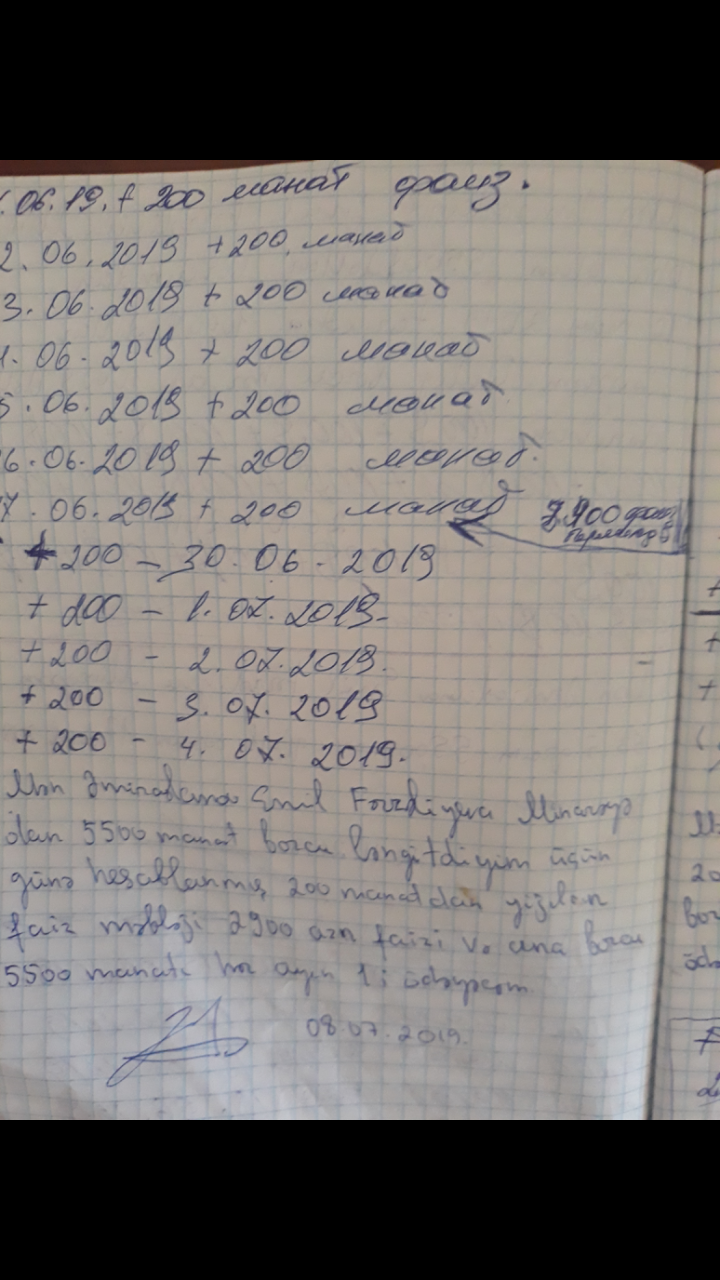 .06.19. + 200 манат фаиз.
2.06.2019 + 200 манат
3.06.2019 + 200 манат
1.06.2019 + 200 манат
5.06.2019 + 200 манат
6.06.2019 + 200 манат.
7.06.2019 + 200 манат
+ 200 – 30.06.2019
+ 200 – 1.07.2019
+ 200 – 2.07.2019.
+ 200 – 3.07.2019
+ 200 – 4.07.2019.
Mən Emil
dan 5500 manat borcu ləngitdiyim üçün
günə hesablanmış 200 manatdan yızılan
faiz məbləği 2900 azn faizi və ana borcu
5500 manatı hər ayın 1i ödəyəcəm.
08.07.2019.